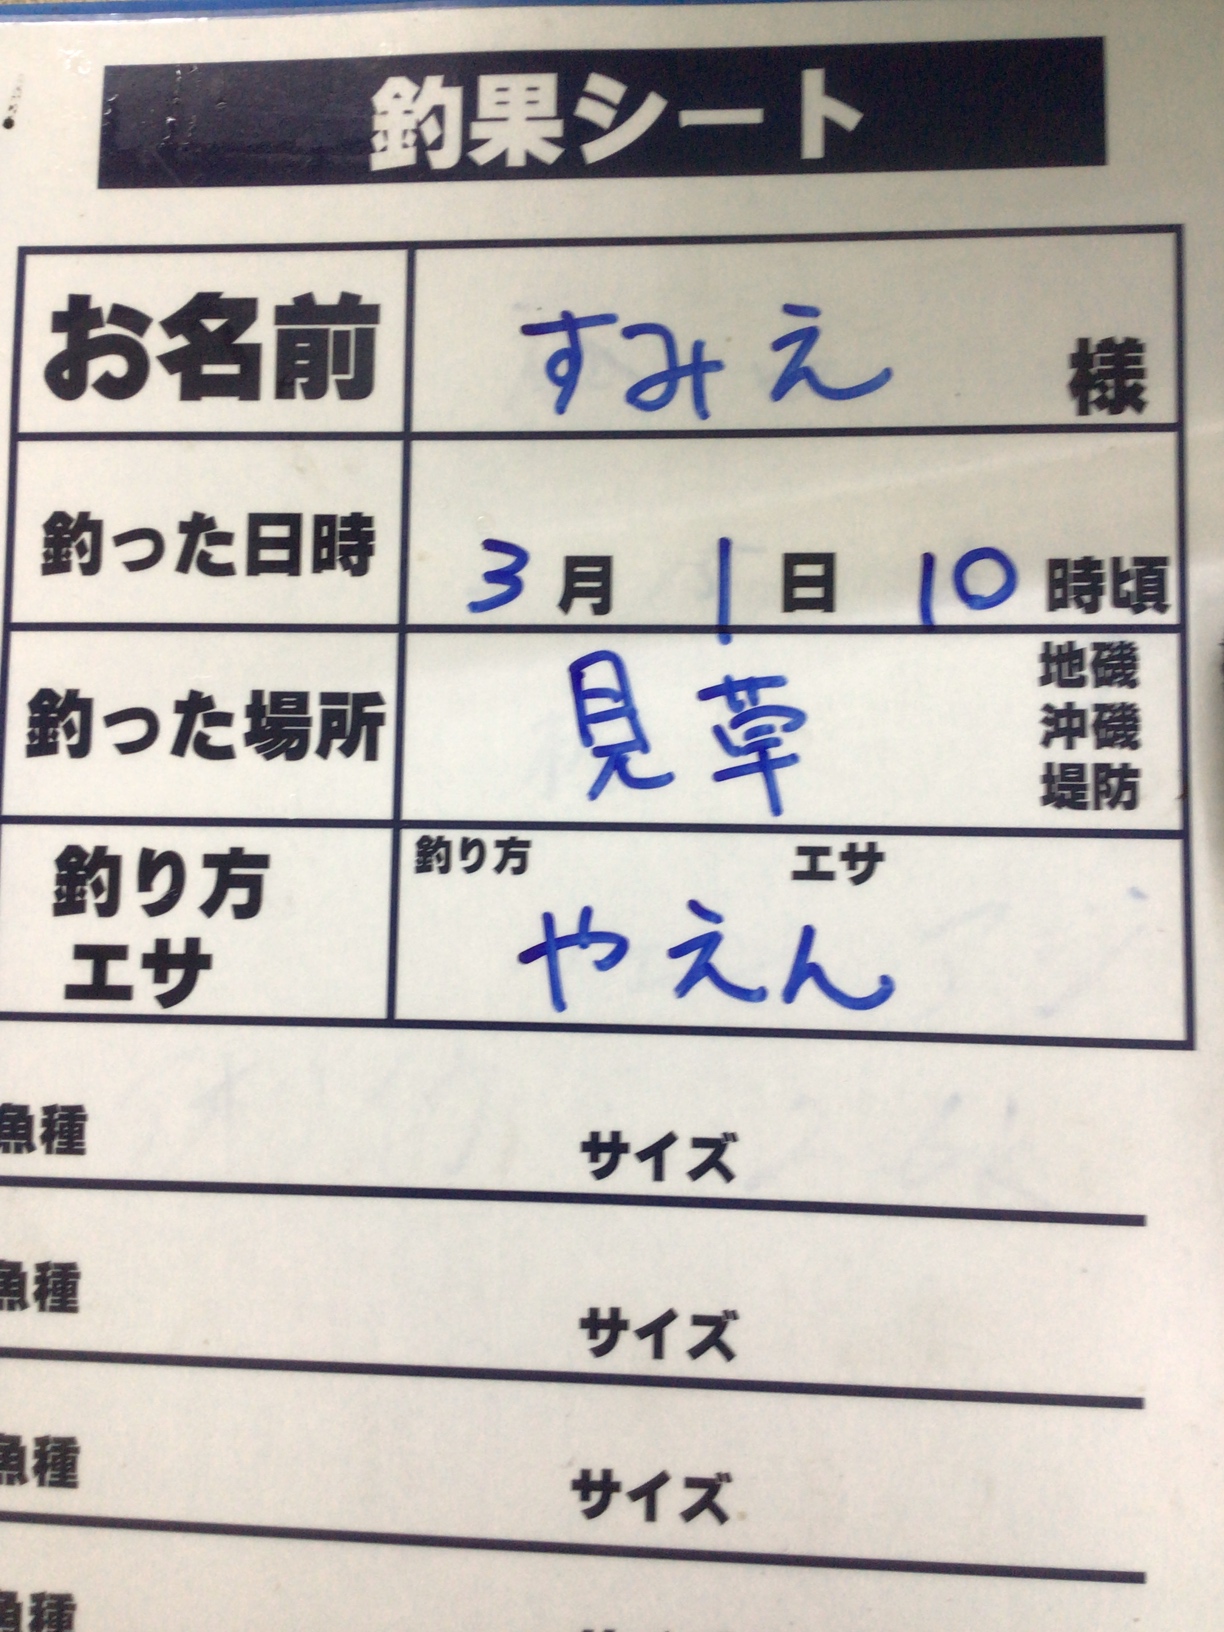 釣果シート
お名前 すみえ 様
釣った日時 3月1日10時頃
釣った場所 見草 地磯
沖磯
堤防
釣り方
エサ
釣り方 エサ
やえん
魚種 サイズ
魚種 サイズ
魚種 サイズ
魚種